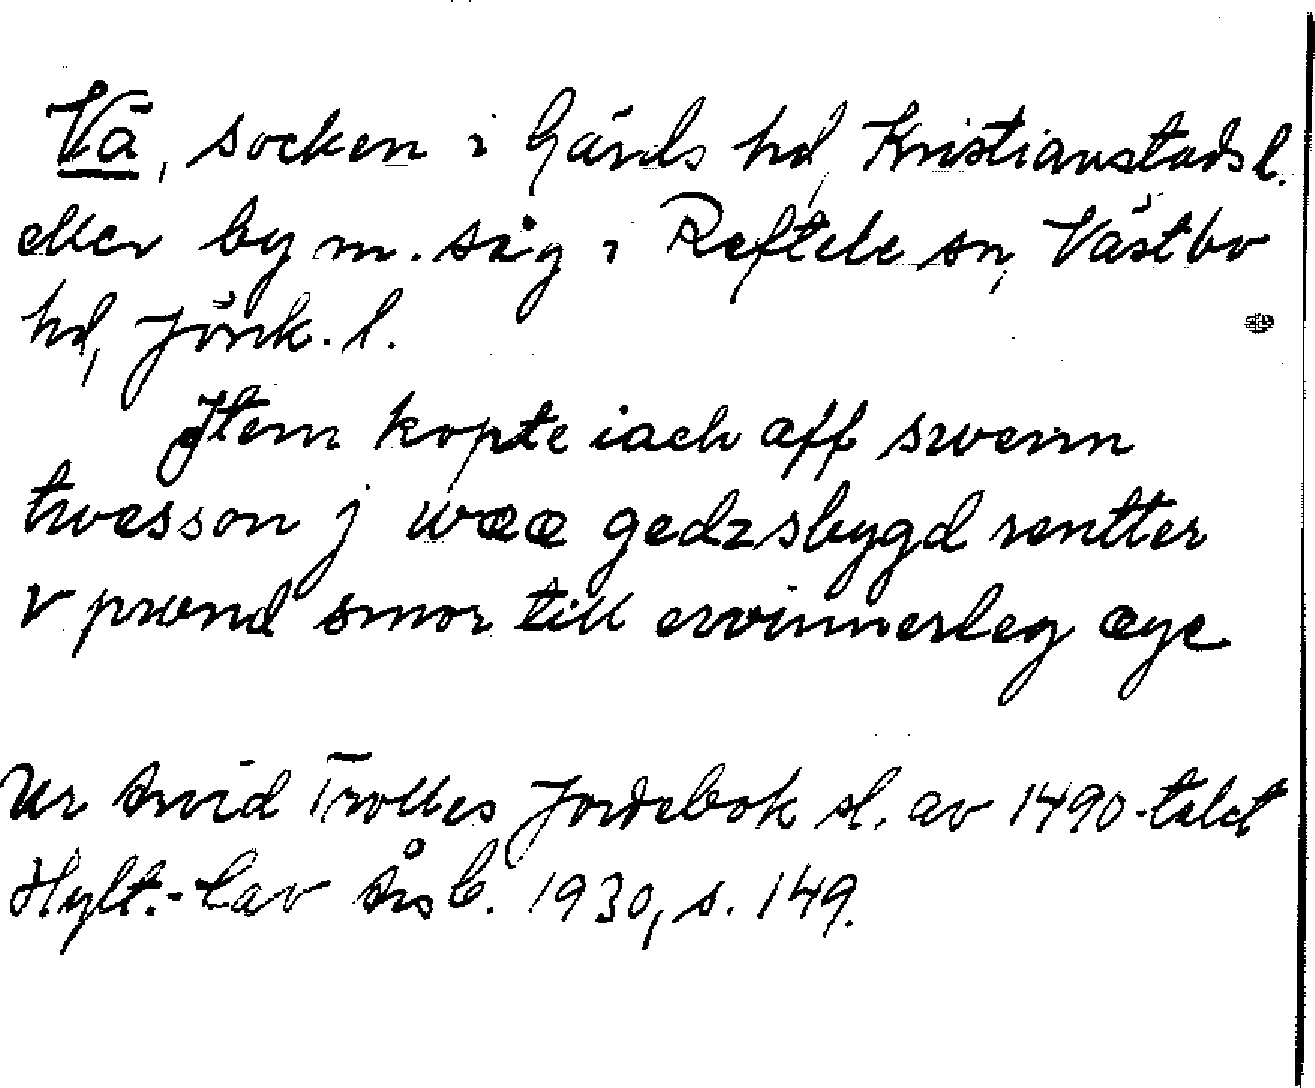 Vä, socken i Gärds hd, Kristianstads l.
eller by m. säg i Reftele sn, Västbo
hd, Jönk. l.
Jtem kopte iach aff swenn
twesson j wææ gedzsbygd rentter
v pwnd smor till ewinnerleg æye
Ur Arvid Trolles Jordebok sl. av 1490-talet
Hylt.-Cav Årsb. 1930, s. 149.